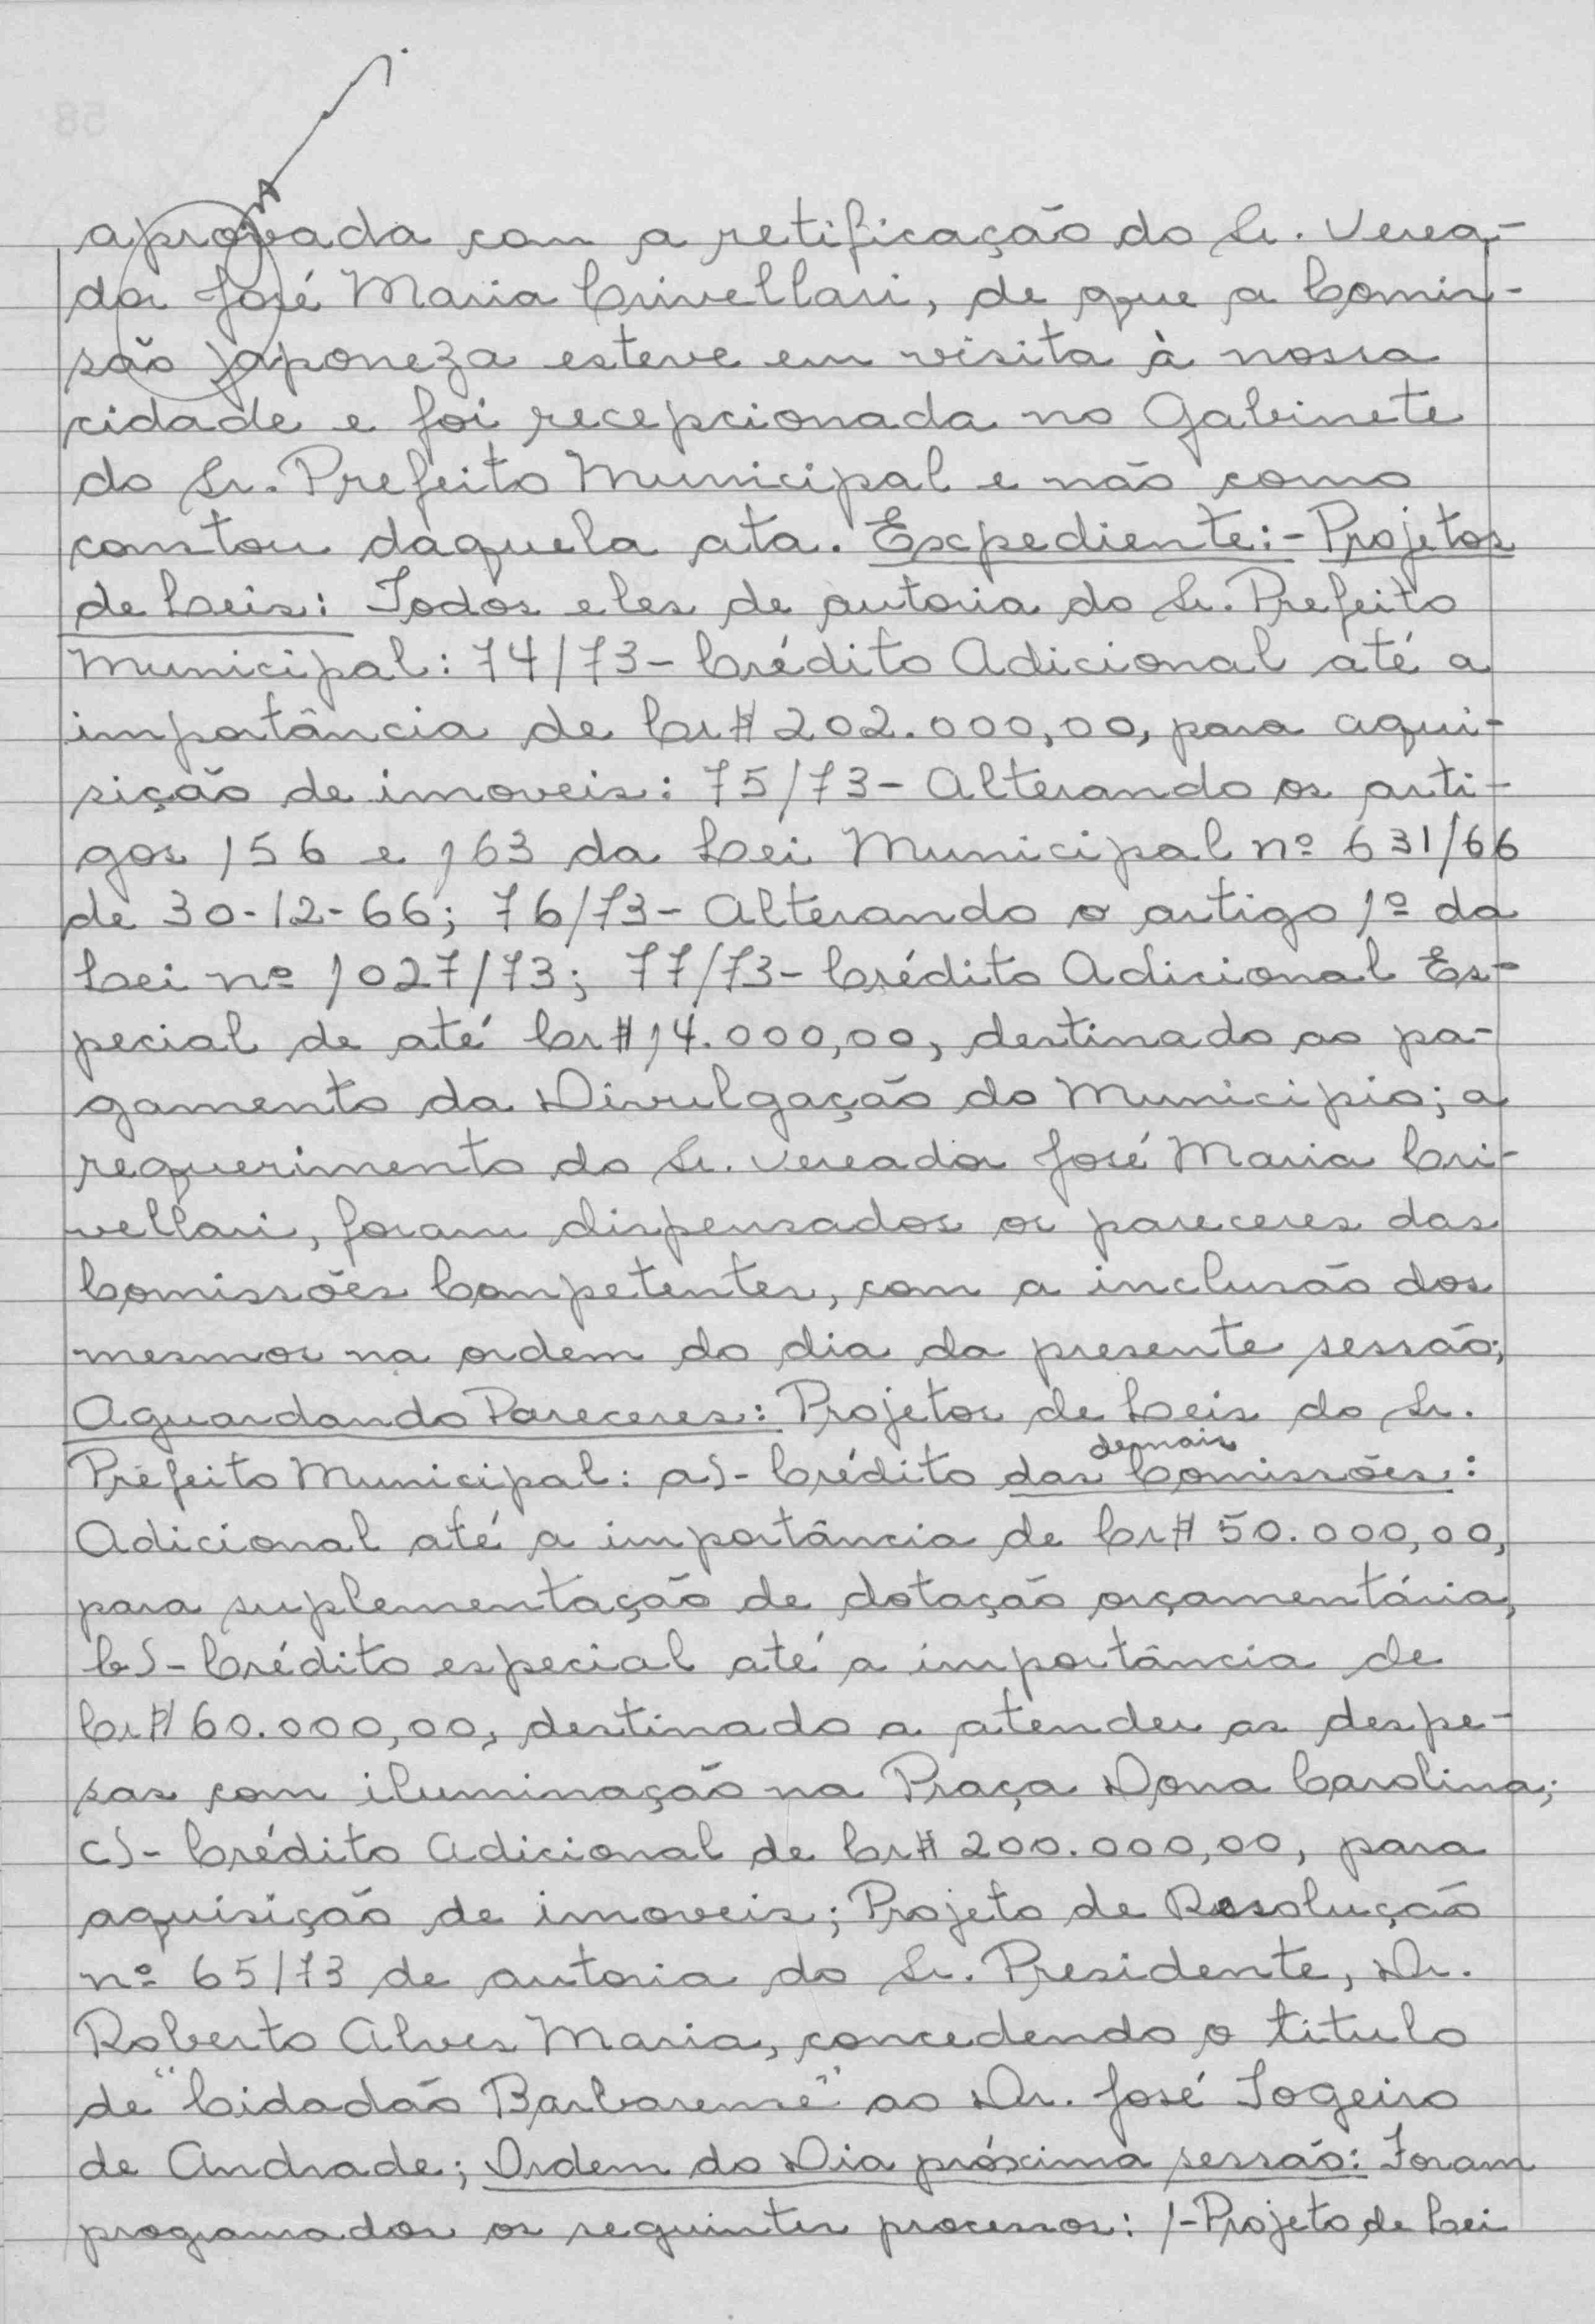 aprovada com a retificação do Sr. Verea-
dor José Maria Crivellari, de que a Comis-
são japoneza esteve em visita à nossa
cidade e foi recepcionada no Gabinete
do Sr. Prefeito Municipal e não como
constou daquela ata. Expediente:- Projetos
de Leis: Todos eles de autoria do Sr. Prefeito
Municipal: 74/73- Crédito Adicional até a
importância de Cr$ 202.000,00, para aqui-
sição de imoveis: 75/73- Alterando os arti-
gos 156 e 163 da Lei Municipal nº 631/66
de 30-12-66; 76/73- Alterando o artigo 1º da
Lei nº 1027/73; 77/73- Crédito Adicional Es-
pecial de até Cr$ 14.000,00, destinado ao pa-
gamento da Divulgação do Municipio; a
requerimento do Sr. Vereador José Maria Cri-
vellari, foram dispensados os pareceres das
Comissões Competentes, com a inclusão dos
mesmos na ordem do dia da presente sessão;
Aguardando Pareceres: Projetos de Leis do Sr.
demais
Prefeito Municipal: a)- Crédito das Comissões:
Adicional até a importância de Cr$ 50.000,00,
para suplementação de dotação orçamentária,
b)- Crédito especial até a importância de
Cr$ 60.000,00, destinado a atender as despe-
sas com iluminação na Praça Dona Carolina;
c)- Crédito Adicional de Cr$ 200.000,00, para
aquisição de imoveis; Projeto de Resolução
nº 65/73 de autoria do Sr. Presidente, Dr.
Roberto Alves Maria, concedendo o titulo
de "Cidadão Barbarense" ao Dr. José Togeiro
de Andrade; Ordem do Dia próxima sessão: Foram
programados os seguintes processos: 1-Projeto de Lei